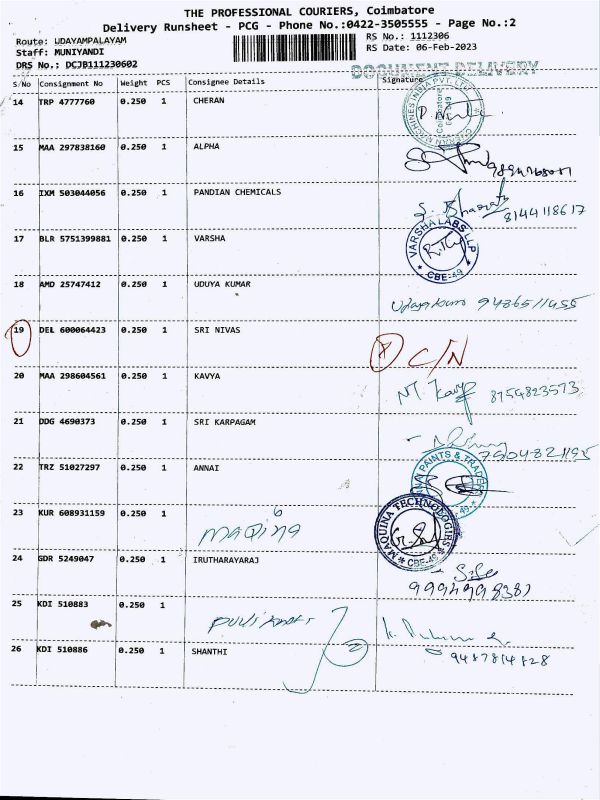 THE PROFESSIONAL COURIERS, Coimbatore
Delivery Runsheet - PCG - Phone No.:0422-3505555 - Page No.:2
Route: UDAYAMPALAYAM
Staff: MUNIYANDI
DRS No.: DCJB111230602
RS No.: 1112306
RS Date: 06-Feb-2023
DOCUMENT DELIVERY
S/No Consignment No Weight PCS Consignee Details Signature
14 TRP 4777760 0.250 1 CHERAN
15 MAA 297838160 0.250 1 ALPHA
16 IXM 503044056 0.250 1 PANDIAN CHEMICALS
S. Bharath
8144118617
17 BLR 5751399881 0.250 1 VARSHA
VARSHA LABS LLP
* CBE-49 *
18 AMD 25747412 0.250 1 UDUYA KUMAR
9486511455
19 DEL 600064423 0.250 1 SRI NIVAS
C/N
20 MAA 298604561 0.250 1 KAVYA
8754823573
21 DDG 4690373 0.250 1 SRI KARPAGAM
7904821195
22 TRZ 51027297 0.250 1 ANNAI
PAINTS & TRADERS
23 KUR 608931159 0.250 1
MAQINA
MAQUINA TECHNOLOGIES
* CBE-49 *
24 GDR 5249047 0.250 1 IRUTHARAYARAJ
9994998381
25 KDI 510883 0.250 1
26 KDI 510886 0.250 1 SHANTHI
9487814828